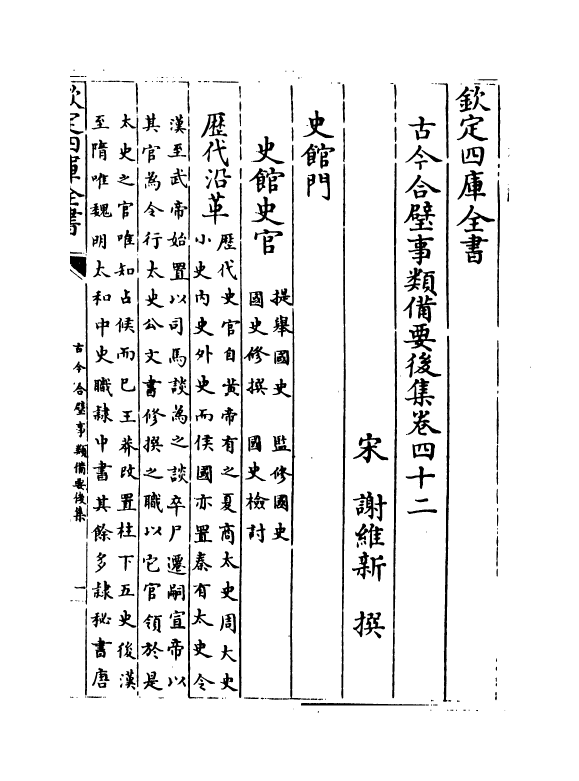 欽定四庫全書
古今合璧事類備要後集卷四十二
宋 謝維新 撰
史館門
史館史官
提舉國史 監修國史
國史修撰 國史檢討
歴代沿革
歴代史官自黄帝有之夏商太史周大史
小史内史外史而侯國亦置秦有太史令
漢至武帝始置以司馬談為之談卒尸遷嗣宣帝以
其官為令行太史公文書修撰之職以它官領於是
太史之官唯知占候而已王莽改置柱下五史後漢
至隋唯魏明太和中史職隸中書其餘多隸秘書唐
欽定四庫全書
古今合璧事類備要後集
一